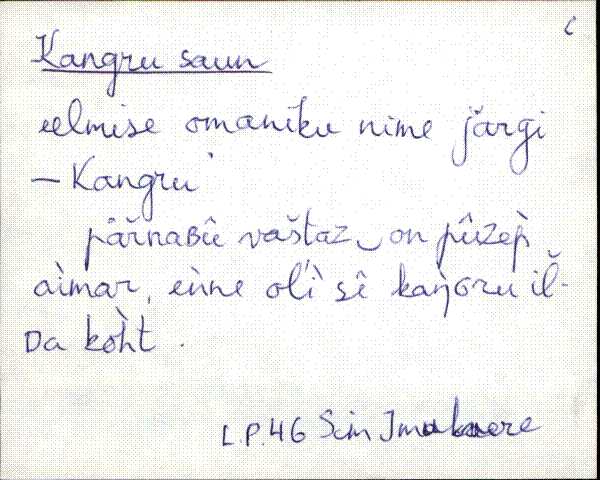 Kangru saun
eelmise omaniku nime järgi
— Kangru
pǟrnaʙûe vaštaz‿on pûzep̀
aìmar, eǹne oĺì sê kaŋɢru il̆-
ᴅa kòh̀t.
L.P.46 Sim Imukvere